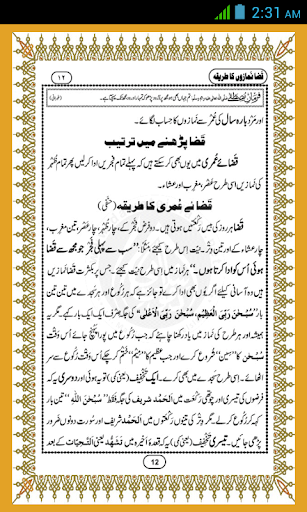 2:31 AM
قضا نمازوں کا طریقہ
۱۲
اور مَرد بارہ سال کی عُمر سے نمازوں کا حساب لگائے۔
قَضا پڑھنے میں ترتیب
قَضائے عُمری میں یوں بھی کر سکتے ہیں کہ پہلے تمام فَجریں ادا کر لیں پھر تمام ظُہر
کی نمازیں اسی طرح عَصر، مغرِب اور عشاء۔
قَضائے عُمری کا طریقہ (حنفی)
قَضا ہر روز کی بیس رَکعتیں ہوتی ہیں۔ دو فرض فَجر کے، چار ظُہر، چار عَصر، تین مغرِب،
چار عشاء کے اور تین وِتر۔ نیّت اِس طرح کیجئے، مَثَلاً: ”سب سے پہلی فَجر جو مجھ سے قَضا
ہوئی اُس کو ادا کرتا ہوں۔“ ہر نَماز میں اِسی طرح نیّت کیجئے۔ جس پر بکثرت قَضا نَمازیں
ہیں وہ آسانی کیلئے اگر یوں بھی ادا کرے تو جائز ہے کہ ہر رُکوع اور ہر سَجدے میں تین تین
بار ”سُبْحٰنَ رَبِّیَ الْعَظِیْم، سُبْحٰنَ رَبِّیَ الْاَعْلٰی“ کی جگہ صِرف ایک ایک بار کہے۔ مگر یہ
ہمیشہ اور ہر طرح کی نَماز میں یاد رکھنا چاہئے کہ جب رُکوع میں پورا پہنچ جائے اُس وَقت
سُبْحٰنَ کا ”سین“ شُروع کرے اور جب عظیم کا ”میم“ ختم کر چکے اُس وَقت رُکوع سے سر
اٹھائے۔ اِسی طرح سَجدے میں بھی کرے۔ ایک تَخفیف (یعنی کمی) تو یہ ہوئی اور دوسری یہ کہ
فرضوں کی تیسری اور چوتھی رَکعَت میں اَلْحَمْد شریف کی جگہ فَقَط ”سُبْحٰنَ اللّٰهِ“ تین بار
کہہ کر رُکوع کر لے۔ مگر وِتر کی تینوں رَکعتوں میں اَلْحَمْد شریف اور سُورت دونوں ضَرور
پڑھی جائیں۔ تیسری تَخفیف (یعنی کمی) یہ کہ قعدۂ اَخیرہ میں تَشَہُّد یعنی اَلتَّحِیّات کے بعد
12